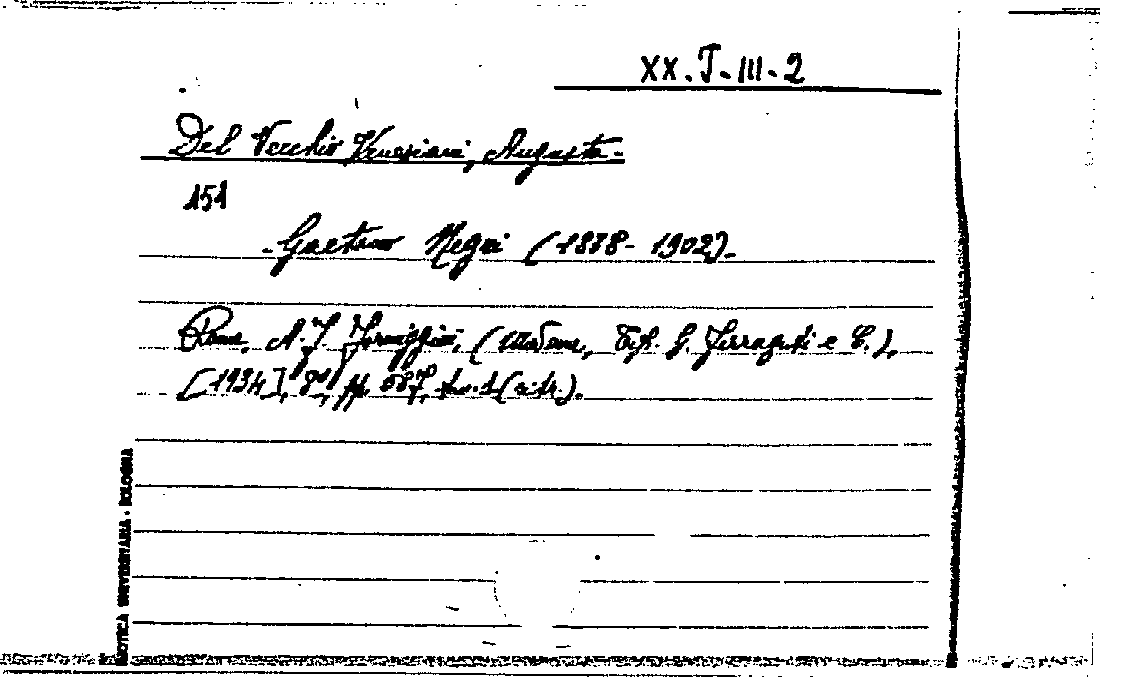 XX.J.III.2
Del Vecchio Veneziani, Augusta.
151
- Gaetano Negri (1838-1902).
Roma, A.F. Formíggini, (Modena, Tip. G. Ferraguti e C.),
[1934], 8°, pp. 567, tav. 1 (ritr.).
BLIOTECA UNIVERSITARIA - BOLOGNA